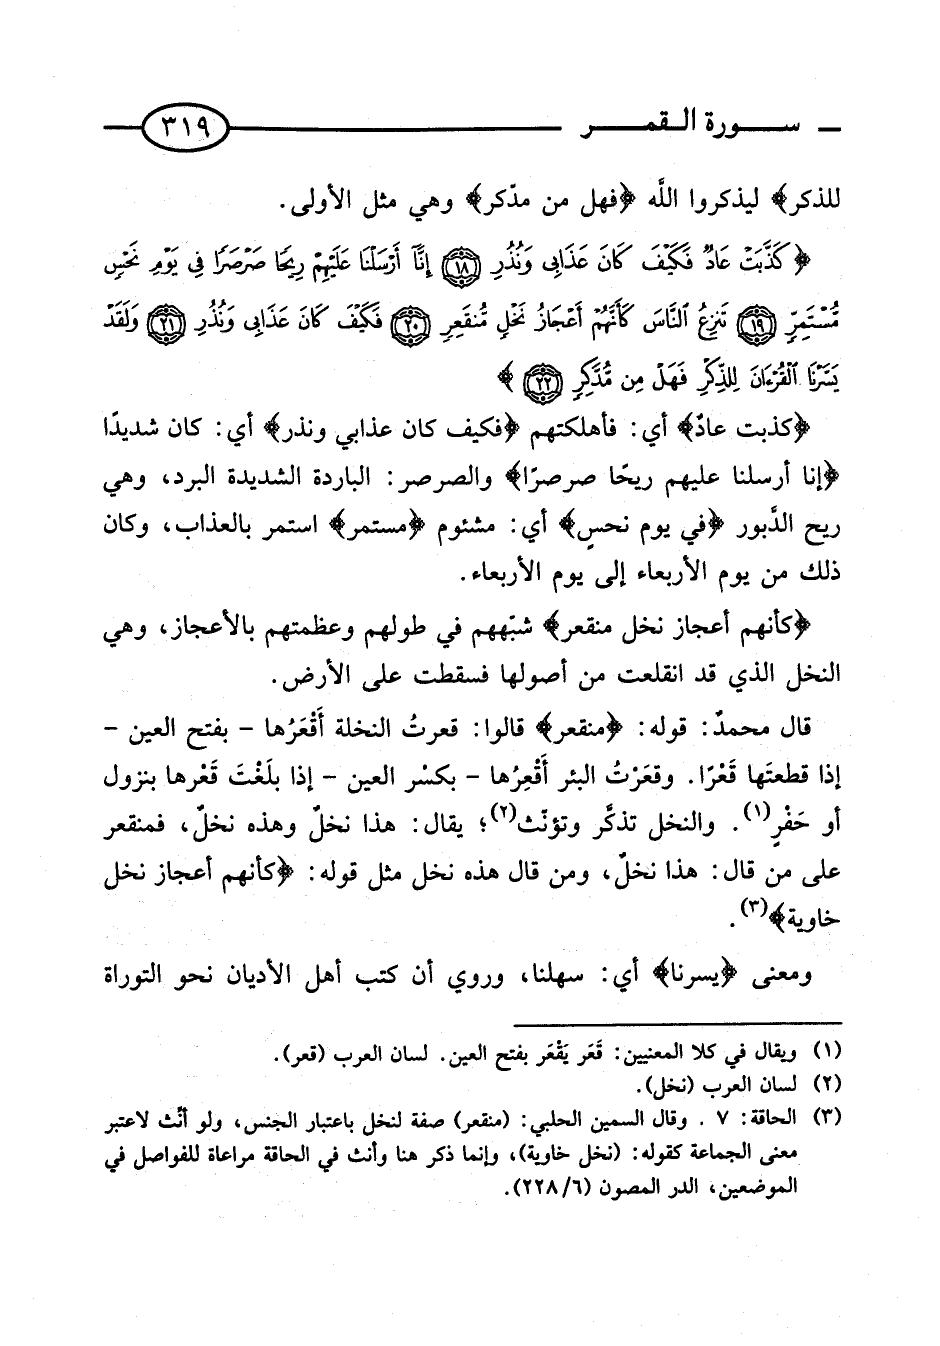 سورة القمر ٣١٩
للذكر﴾ ليذكروا اللَّه ﴿فهل من مدّكر﴾ وهي مثل الأولى.
﴿ كَذَّبَتْ عَادٌ فَكَيْفَ كَانَ عَذَابِى وَنُذُرِ ۝١٨ إِنَّآ أَرْسَلْنَا عَلَيْهِمْ رِيحًا صَرْصَرًا فِى يَوْمِ نَحْسٍ
مُّسْتَمِرٍّ ۝١٩ تَنزِعُ ٱلنَّاسَ كَأَنَّهُمْ أَعْجَازُ نَخْلٍ مُّنقَعِرٍ ۝٢٠ فَكَيْفَ كَانَ عَذَابِى وَنُذُرِ ۝٢١ وَلَقَدْ
يَسَّرْنَا ٱلْقُرْءَانَ لِلذِّكْرِ فَهَلْ مِن مُّدَّكِرٍ ۝٢٢ ﴾
﴿كذبت عادٌ﴾ أي: فأهلكتهم ﴿فكيف كان عذابي ونذر﴾ أي: كان شديدًا
﴿إنا أرسلنا عليهم ريحًا صرصرًا﴾ والصرصر: الباردة الشديدة البرد، وهي
ريح الدَّبور ﴿في يوم نحسٍ﴾ أي: مشئوم ﴿مستمر﴾ استمر بالعذاب، وكان
ذلك من يوم الأربعاء إلى يوم الأربعاء.
﴿كأنهم أعجاز نخل منقعر﴾ شبّههم في طولهم وعظمتهم بالأعجاز، وهي
النخل الذي قد انقلعت من أصولها فسقطت على الأرض.
قال محمدٌ: قوله: ﴿منقعر﴾ قالوا: قعرتُ النخلة أَقْعَرُها - بفتح العين -
إذا قطعتَها قَعْرًا. وقعَرْتُ البئر أَقْعِرُها - بكسْر العين - إذا بلَغْتَ قَعْرها بنزول
أو حَفْرٍ(١). والنخل تذكَّر وتؤنّث(٢)؛ يقال: هذا نخلٌ وهذه نخلٌ، فمنقعر
على من قال: هذا نخلٌ، ومن قال هذه نخل مثل قوله: ﴿كأنهم أعجاز نخل
خاوية﴾(٣).
ومعنى ﴿يسرنا﴾ أي: سهلنا، وروي أن كتب أهل الأديان نحو التوراة
(١) ويقال في كلا المعنيين: قَعَر يَقْعَر بفتح العين. لسان العرب (قعر).
(٢) لسان العرب (نخل).
(٣) الحاقة: ٧. وقال السمين الحلبي: (منقعر) صفة لنخل باعتبار الجنس، ولو أنَّث لاعتبر
معنى الجماعة كقوله: (نخل خاوية)، وإنما ذكر هنا وأنث في الحاقة مراعاة للفواصل في
الموضعين، الدر المصون (٢٢٨/٦).